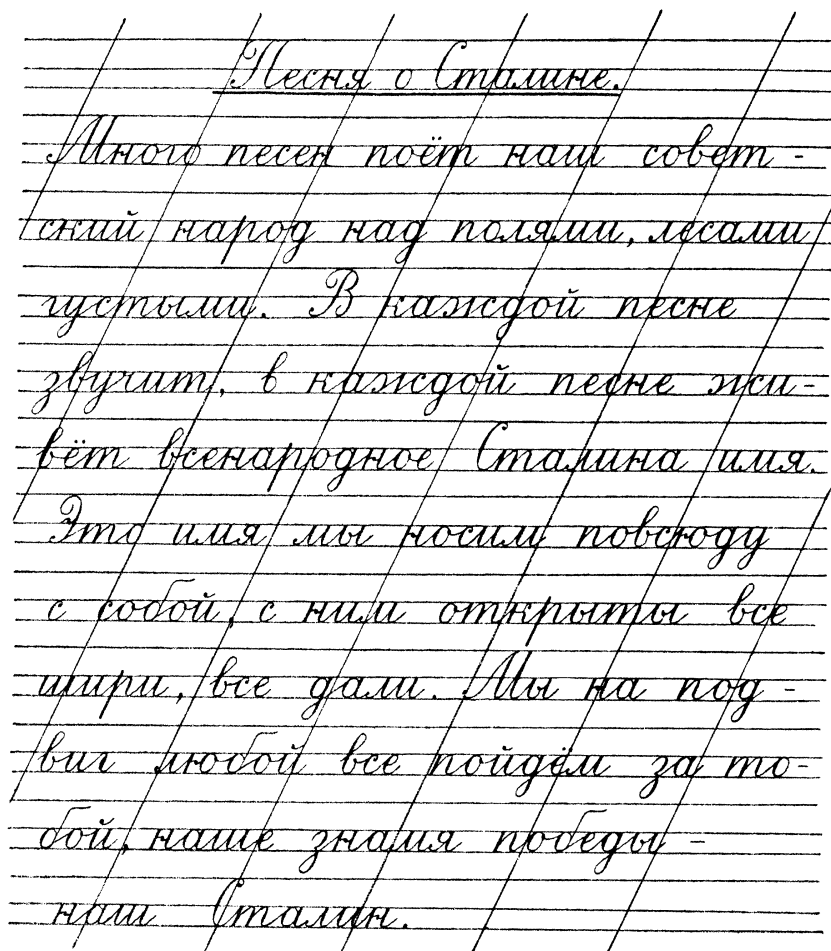 Песня о Сталине.
Много песен поёт наш совет-
ский народ над полями, лесами
густыми. В каждой песне
звучит, в каждой песне жи-
вёт всенародное Сталина имя.
Это имя мы носим повсюду
с собой, с ним открыты все
шири, все дали. Мы на под-
виг любой все пойдём за то-
бой, наше знамя победы -
наш Сталин.